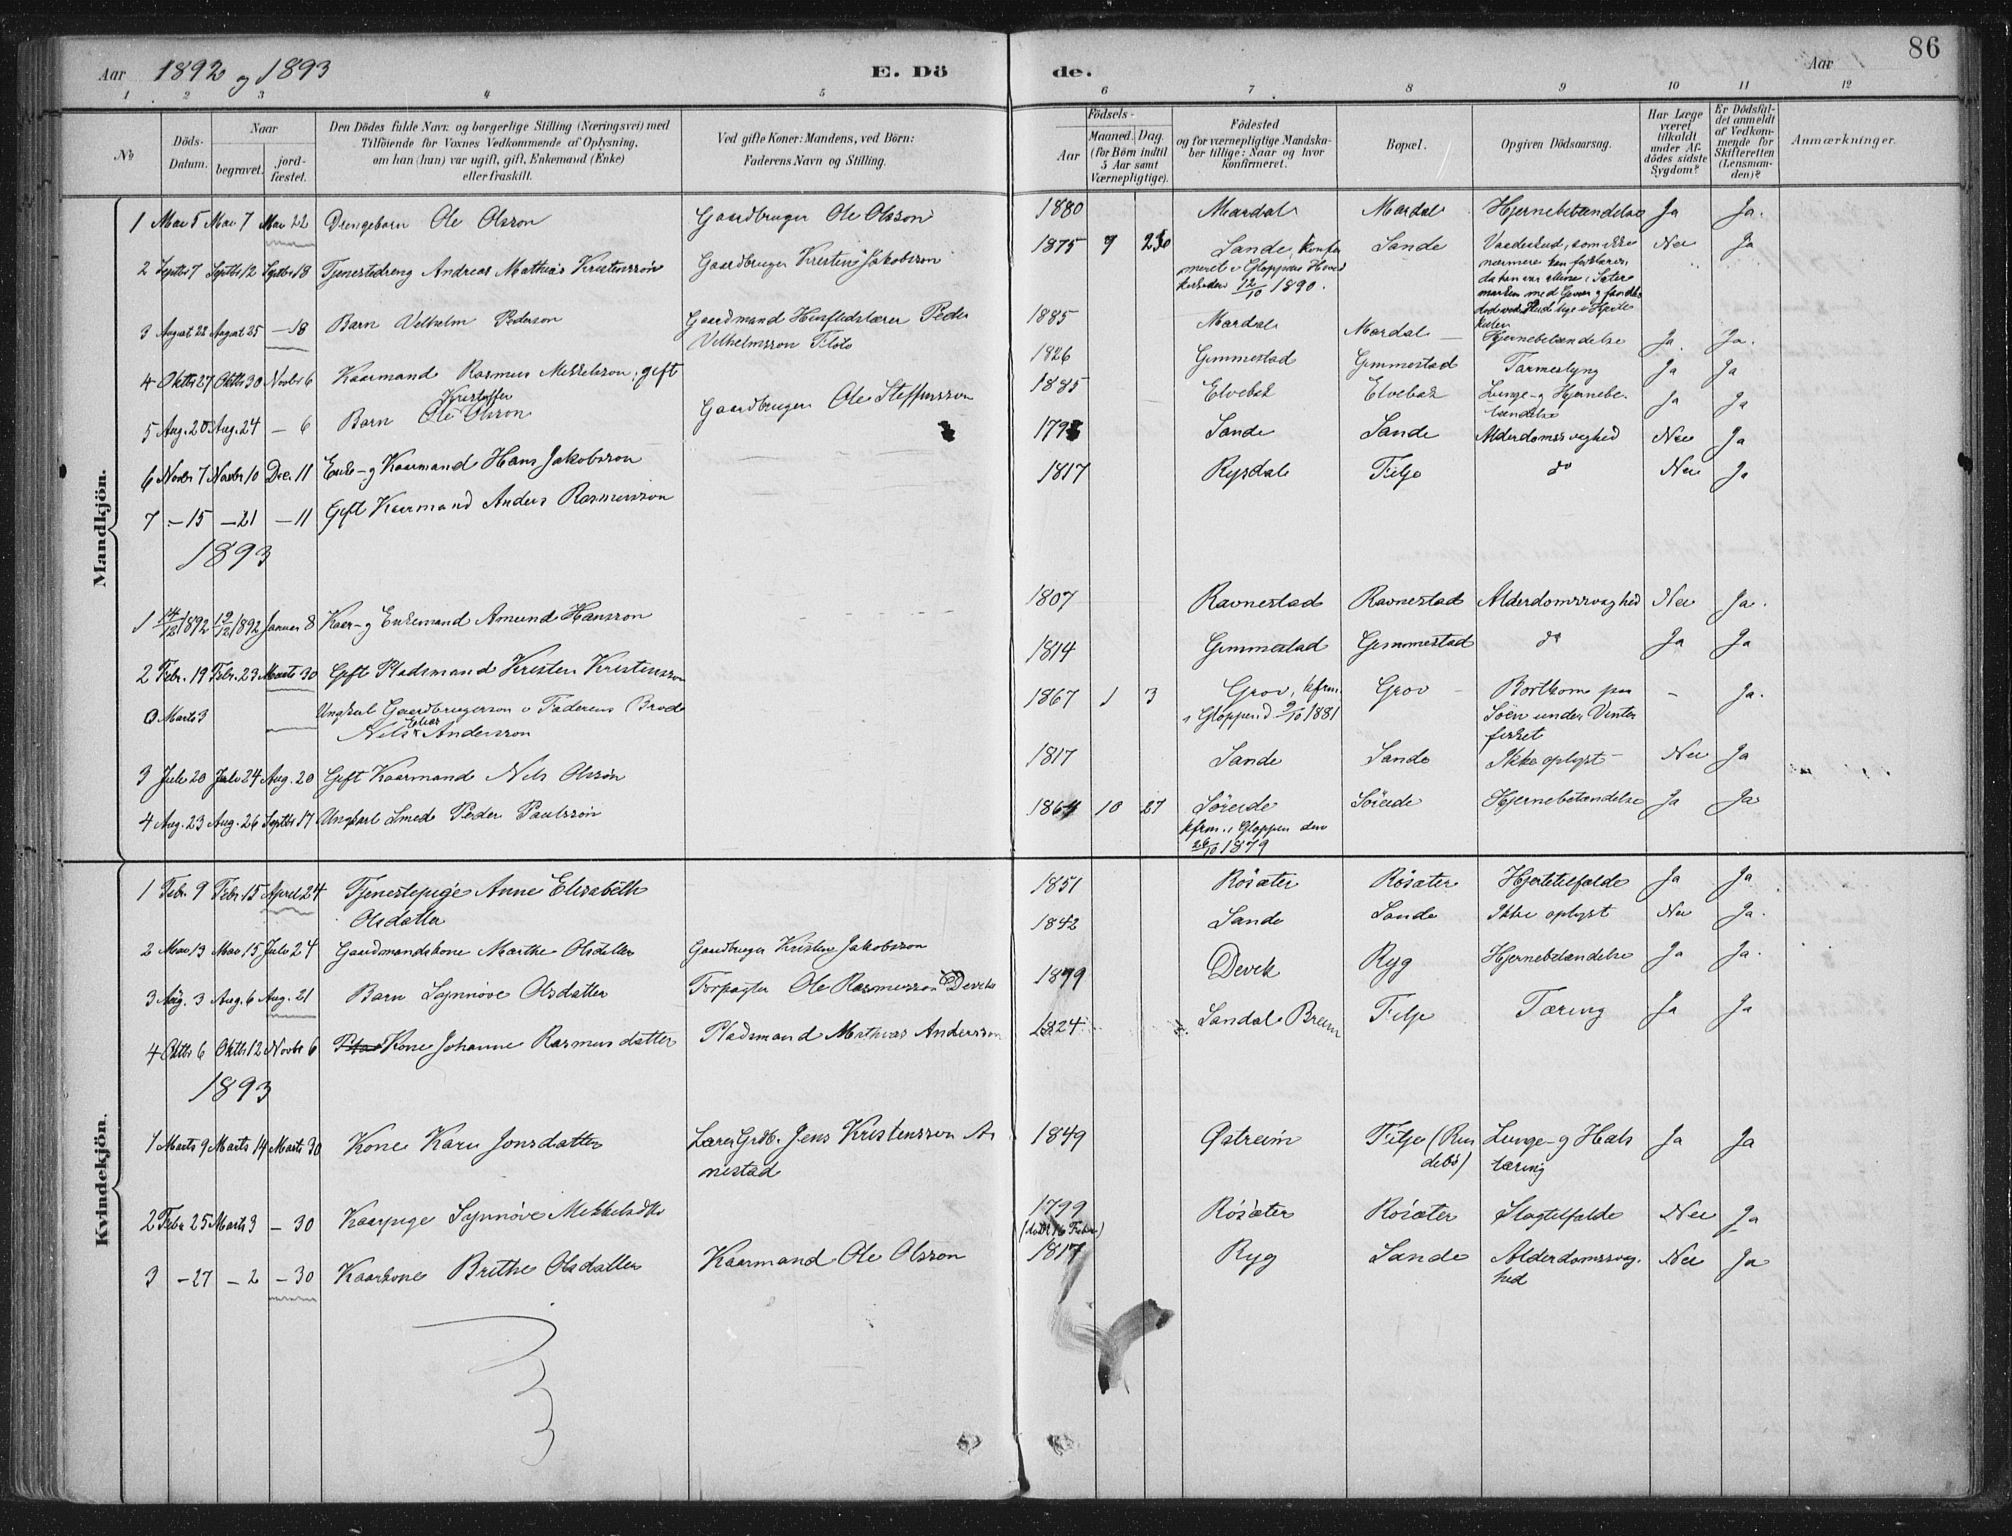 86
Aar 1892 og 1893 E. Dö de. Aar
1 2 3 4 5 6 7 8 9 10 11 12
No
Döds-Datum.
Naar
begravet.
jord-fæstet.
Den Dödes fulde Navn og borgerlige Stilling (Næringsvei) med
Tilföiende for Voxnes Vedkommende af Oplysning,
om han (hun) var ugift, gift, Enkemand (Enke)
eller fraskilt.
Ved gifte Koner: Mandens, ved Börn:
Faderens Navn og Stilling.
Födsels-
Aar
Maaned. Dag.
(for Börn indtil
5 Aar samt
Værnepligtige).
Födested
og for værnepligtige Mandska-
ber tillige: Naar og hvor
konfirmeret.
Bopæl.
Opgiven Dödsaarsag.
Har Læge
været
tilkaldt
under Af-
dödes sidste
Sygdom?
Er Dödsfal-
det anmeldt
af Vedkom-
mende for
Skifteretten
(Lensman-
den)?
Anmærkninger.
Mandkjön.
1 Mai 5 Mai 7 Mai 22 Drengebarn Ole Olsson Gaardbruger Ole Olsson 1880 Mardal Mardal Hjernebetændelse Ja Ja.
2 Septbr 7 Septbr 12 Septbr 18 Tjenestedreng Andreas Mathias Kristensson Gaardbruger Kristen Jakobsson 1875 9 Sande, konfir
meret i Gloppens Hoved
kirke den 12/10 1890. Sande Vaadeskud, som ikke
nærmere kan forklares
da han var allene i Sæter
marken med Gevær Nei Ja
3 August 22 August 25 — 18 Barn Vilhelm Pederson Gaardmand Husflidslærer Peder
Vilhelmsson Floto 1885 Mardal Mardal Hjernebetændelse Ja. Ja.
4 Oktbr 27 Oktbr 30 Novbr 6 Kaarmand Rasmus Mikkelsson, gift 1826 Gimmestad Gimmestad Tarmeslyng Ja Ja
5 Aug. 20 Aug. 24 — 6 Barn Ole Kristoffer Olsson Gaardbruger Ole Steffensson 1885 Elvebak Elvebak Lunge- og Hjernebe-
tændelse Ja Ja
6 Novbr 7 Novbr 10 Dec. 11 Enke- og Kaarmand Hans Jakobsson Sande Sande Alderdomssvaghed Nei Ja
7 — 15 — 21 — 11 Gift Kaarmand Anders Rasmusson 1817 Rysdal Felje do Nei Ja
1893
1 14/12 1892 19/12 1892 Januar 8 Kaar- og Enkemand Amund Hansson 1807 Ravnestad Ravnestad Alderdomssvaghed Nei Ja.
2 Febr. 19 Febr. 23 Marts 30 Gift Pladsmand Kristen Kristensson 1814 Gimmestad Gimmestad do Ja Ja
0 Marts 3 Ungkarl Gaardbrugerson i Faderens Brød
Nils Elias Andersson 1867 1 3 Grov, kfrm.
i Gloppen d 9/10 1881 Grov Bortkom paa
Søen under Vinter
fisket – Ja.
3 Juli 20 Juli 24 Aug. 20 Gift Kaarmand Nils Olsson 1817 Sande Sande Ikke oplyst – Nei Ja
4 Aug. 23 Aug. 26 Septbr 17 Ungkarl Smed Peder Paulsson 1864 10 27 Søreide
kfrm. i Gloppen den
26/10 1879 Søreide Hjernebetændelse Ja Ja
Kvindekjön.
1 Febr. 9 Febr. 15 April 24 Tjenestepige Anne Elisabeth
Olsdatter 1851 Rösæter Rösæter Hjertetilfælde Ja Ja
2 Mai 13 Mai 15 Juli 24 Gaardmandskone Marthe Olsdatter Gaardbruger Kristen Jakobsson 1842 Sande Sande Ikke oplyst Nei Ja.
3 Aug. 3 Aug. 6 Aug. 21 Barn Synnøve Olsdatter Forpagter Ole Rasmusson Devik Devik Ryg Hjernebetændelse Ja Ja.
4 Oktbr 6 Oktbr 12 Novbr 6 Kone Johanne Rasmusdatter Pladsmand Mathias Andersson 1824 Sandal Breim Felje Tæring Ja Ja
1893
1 Marts 9 Marts 14 Marts 30 Kone Kari Jonsdatter Lærer Grdb. Jens Kristensson Ar
nestad 1849 Østreim Felje (Run
debø) Lunge- og Hals
tæring Ja Ja
2 Febr 25 Marts 3 — 30 Kaarpige Synnøve Mikkelsdtr 1799
(døbt 16 Febr.) Rösæter Rösæter Slagtilfælde Nei Ja
3 — 27 — 2 — 30 Kaarkone Brithe Olsdatter Kaarmand Ole Olsson 1817 Ryg Sande Alderdomssvag-
hed Nei Ja